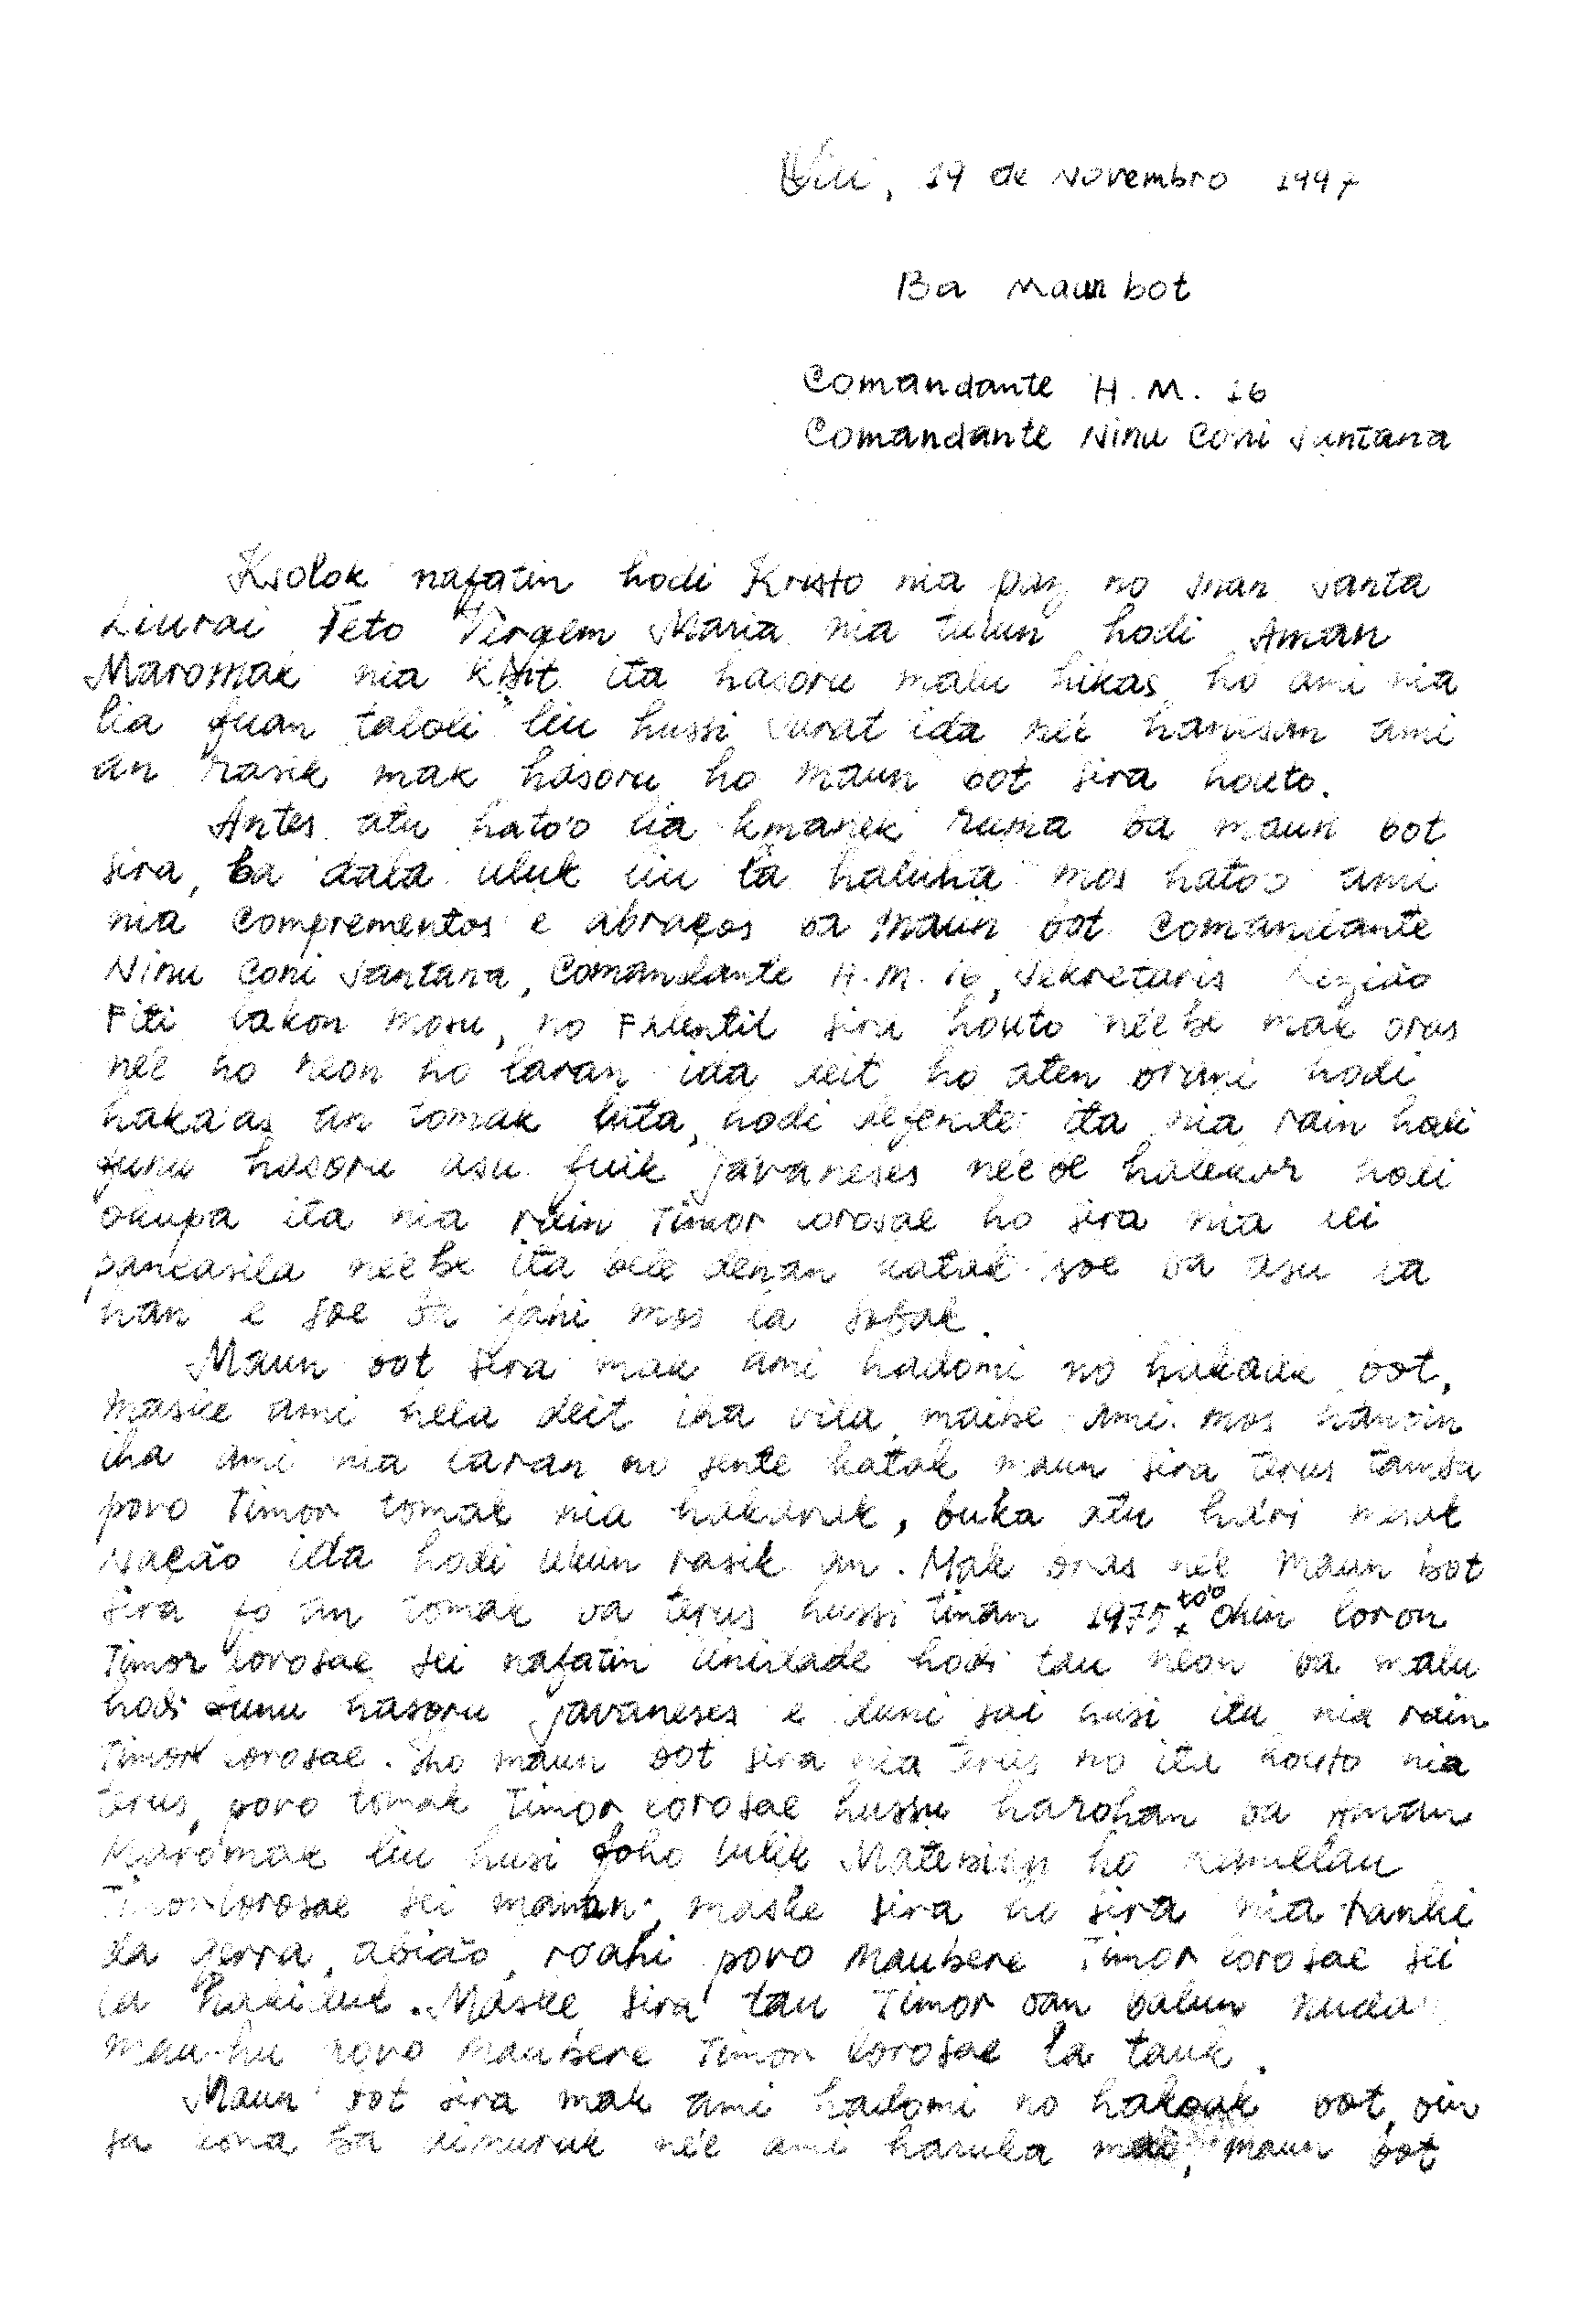 Dili, 19 de Novembro 1997
Ba Maun bot
Comandante H.M. 16
Comandante Ninu Coni Santana
Ksolok nafatin hodi Kristo nia paz no Inan Santa
Liurai Feto Virgem Maria nia tulun hodi Aman
Maromak nia Kbiit ita hasoru malu hikas ho ami nia
lia fuan taloli liu hussi surat ida ne'e hanesan ami
an rasik mak hasoru ho maun bot sira houto.
Antes atu hato'o lia kmanek ruma ba maun bot
sira, ba dala uluk liu la haluha mos hato'o ami
nia comprementos e abraços ba maun bot comandante
Ninu Coni Santana, Comandante H.M. 16, Sekretaris Região
Fiti lakon mosu, no Falentil sira houto ne'ebe mak oras
ne'e ho neon ho laran ida deit ho aten brani hodi
haka'as an tomak luta, hodi defende ita nia rain hodi
funu hasoru asu fuik javaneses ne'ebe halekar hodi
okupa ita nia rain Timor lorosae ho sira nia lei
pancasila ne'ebe ita bele dehan katak soe ba asu la
han e soe ba fahi mos la sobak.
Maun bot sira mak ami hadomi no hakaak bot,
maske ami hela deit iha vila maibe ami mos hanoin
iha ami nia laran no sente katak maun sira terus tamba
povo Timor tomak nia hakarak, buka atu hari nasak
Nação ida hodi ukun rasik an. Mak oras ne'e maun bot
sira fo an tomak ba terus hussi tinan 1975 to'o ohin loron
Timor lorosae sei nafatin unidade hodi tau neon ba malu
hodi funu hasoru javaneses e duni sai husi ita nia rain
Timor lorosae. Iho maun bot sira nia terus no ita houto nia
terus, povo tomak Timor lorosae hussu harohan ba Aman
Maromak liu husi foho lulik Matebian ho Ramelau
Timor lorosae sei manan, maske sira ho sira nia tanki
da gerra, abião, roahi povo Maubere Timor lorosae sei
la hakiduk. Maske sira tau Timor oan balun nudar
mau-hu povo Maubere Timor lorosae la tauk.
Maun bot sira mak ami hadomi no hakaak bot, oin
sa kona ba aimoruk ne'e ami haruka mai, maun bot